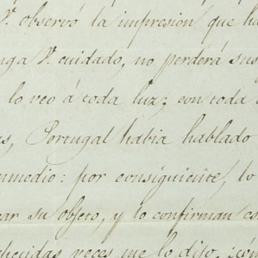 V. observó la impresion que ha
nga V. cuidado, no perderá sus
lo veo á toda luz; con toda
s, Portugal habia hablado
nmedio: por consiguiente, lo
ar su objeto, y lo confirman es
chisimas veces me lo dijo, ¿cón